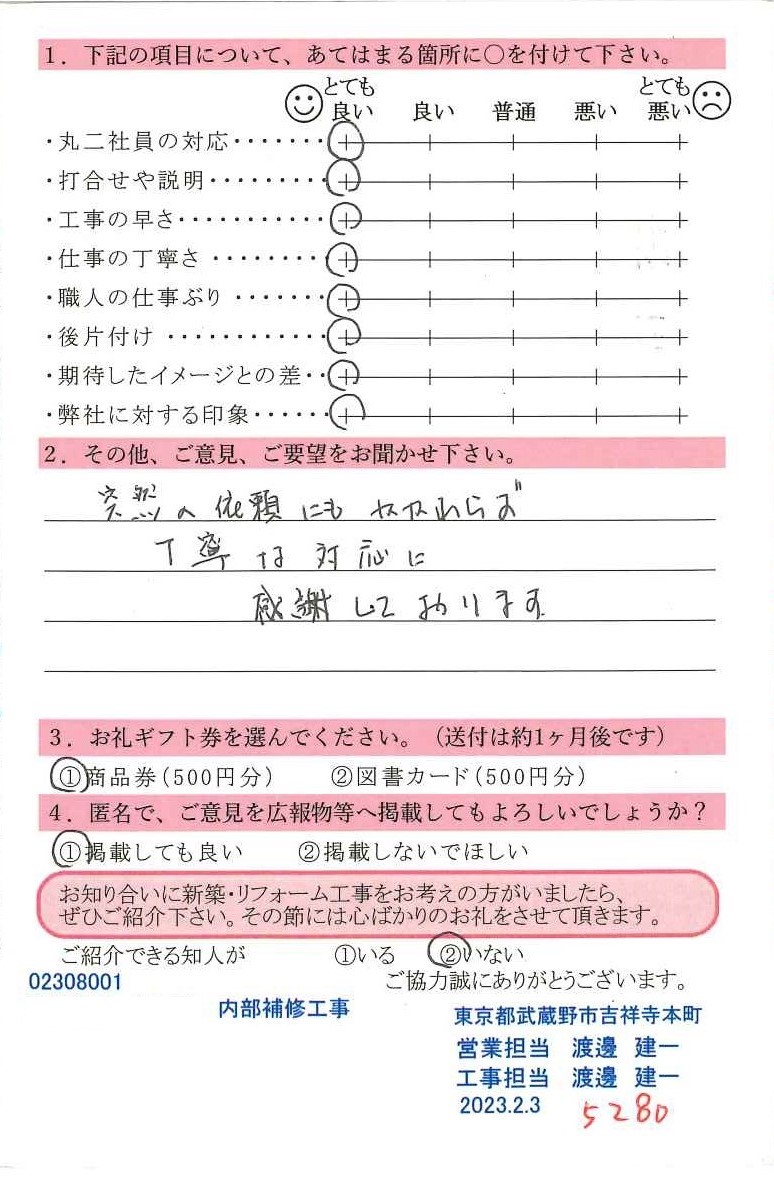 1．下記の項目について、あてはまる箇所に○を付けて下さい。
とても良い 良い 普通 悪い とても悪い
・丸二社員の対応・・・・・・・
・打合せや説明・・・・・・・・・
・工事の早さ・・・・・・・・・・・
・仕事の丁寧さ ・・・・・・・・
・職人の仕事ぶり ・・・・・・・
・後片付け ・・・・・・・・・・・・
・期待したイメージとの差・・
・弊社に対する印象・・・・・・
2．その他、ご意見、ご要望をお聞かせ下さい。
突然の依頼にもかかわらず
丁寧な対応に
感謝しております
3．お礼ギフト券を選んでください。（送付は約1ヶ月後です）
①商品券（500円分） ②図書カード（500円分）
4．匿名で、ご意見を広報物等へ掲載してもよろしいでしょうか？
①掲載しても良い ②掲載しないでほしい
お知り合いに新築・リフォーム工事をお考えの方がいましたら、
ぜひご紹介下さい。その節には心ばかりのお礼をさせて頂きます。
ご紹介できる知人が ①いる ②いない
ご協力誠にありがとうございます。
02308001
内部補修工事
東京都武蔵野市吉祥寺本町
営業担当 渡邊 建一
工事担当 渡邊 建一
2023.2.3
5280